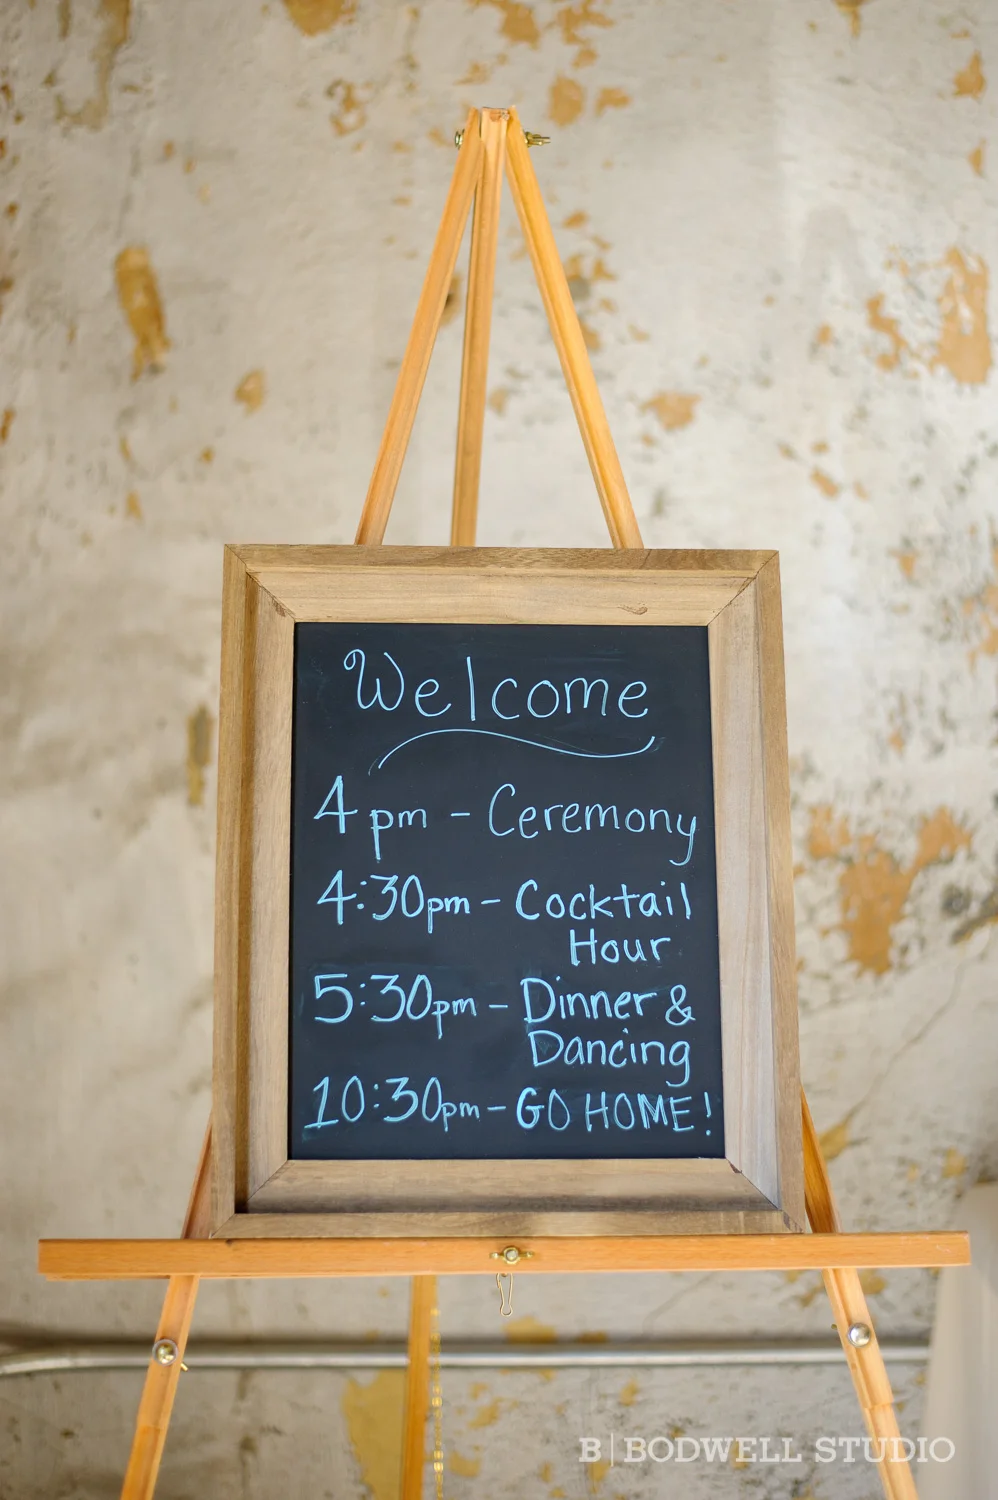 Welcome
4pm - Ceremony
4:30pm - Cocktail
Hour
5:30pm - Dinner &
Dancing
10:30pm - GO HOME!
B|BODWELL STUDIO